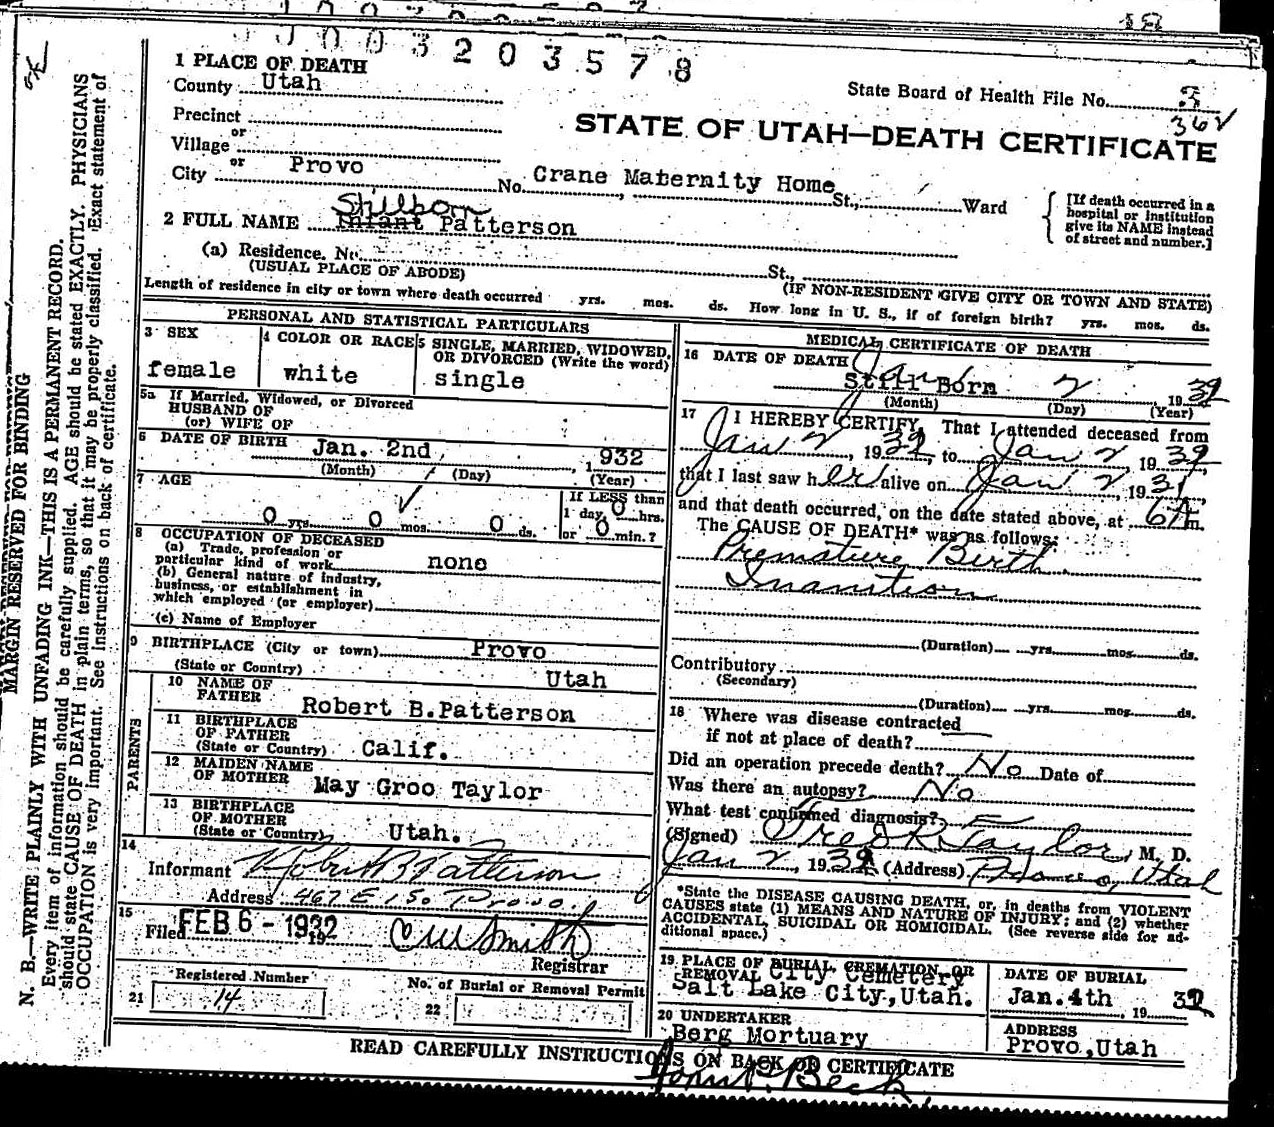 0003203578
1 PLACE OF DEATH
County Utah
State Board of Health File No. 3
362
Precinct
or
Village
STATE OF UTAH—DEATH CERTIFICATE
or
City Provo No. Crane Maternity Home St., Ward
[If death occurred in a hospital or institution give its NAME instead of street and number.]
Stilborn
2 FULL NAME Infant Patterson
(a) Residence. No. St.,
(USUAL PLACE OF ABODE) (IF NON-RESIDENT GIVE CITY OR TOWN AND STATE)
Length of residence in city or town where death occurred yrs. mos. ds. How long in U. S., if of foreign birth? yrs. mos. ds.
PERSONAL AND STATISTICAL PARTICULARS
3 SEX
female
4 COLOR OR RACE
white
5 SINGLE, MARRIED, WIDOWED, OR DIVORCED (Write the word)
single
5a If Married, Widowed, or Divorced
HUSBAND OF
(or) WIFE OF
6 DATE OF BIRTH Jan. 2nd, 1932
(Month) (Day) (Year)
7 AGE
0 yrs. 0 mos. 0 ds.
If LESS than
1 day, 0 hrs.
or 0 min.?
8 OCCUPATION OF DECEASED
(a) Trade, profession or
particular kind of work none
(b) General nature of industry,
business, or establishment in
which employed (or employer)
(c) Name of Employer
9 BIRTHPLACE (City or town) Provo
(State or Country) Utah
PARENTS
10 NAME OF
FATHER Robert B.Patterson
11 BIRTHPLACE
OF FATHER
(State or Country) Calif.
12 MAIDEN NAME
OF MOTHER May Groo Taylor
13 BIRTHPLACE
OF MOTHER
(State or Country) Utah.
14
Informant Robert B Patterson
Address 467 E 1 So Provo
15
Filed FEB 6 - 1932 19
Registrar
Registered Number
21 14
No. of Burial or Removal Permit
22
MEDICAL CERTIFICATE OF DEATH
16 DATE OF DEATH Jan
Still Born 2, 1932
(Month) (Day) (Year)
17 I HEREBY CERTIFY, That I attended deceased from
Jan 2, 1932, to Jan 2, 1932,
that I last saw her alive on Jan 2, 1931,
and that death occurred, on the date stated above, at 6A m.
The CAUSE OF DEATH* was as follows:
Premature Birth
Inanition
(Duration) yrs. mos. ds.
Contributory
(Secondary)
(Duration) yrs. mos. ds.
18 Where was disease contracted
if not at place of death?
Did an operation precede death? No Date of
Was there an autopsy? No
What test confirmed diagnosis?
(Signed) Fred R Taylor, M. D.
Jan 2, 1932 (Address) Provo, Utah
*State the DISEASE CAUSING DEATH, or, in deaths from VIOLENT
CAUSES state (1) MEANS AND NATURE OF INJURY; and (2) whether
ACCIDENTAL, SUICIDAL OR HOMICIDAL. (See reverse side for ad-
ditional space.)
19 PLACE OF BURIAL, CREMATION, OR
REMOVAL City Cemetery
Salt Lake City,Utah.
DATE OF BURIAL
Jan.4th, 1932
20 UNDERTAKER
Berg Mortuary
ADDRESS
Provo,Utah
READ CAREFULLY INSTRUCTIONS ON BACK OF CERTIFICATE
MARGIN RESERVED FOR BINDING
N. B.—WRITE PLAINLY WITH UNFADING INK—THIS IS A PERMANENT RECORD.
Every item of information should be carefully supplied. AGE should be stated EXACTLY. PHYSICIANS
should state CAUSE OF DEATH in plain terms, so that it may be properly classified. Exact statement of
OCCUPATION is very important. See instructions on back of certificate.